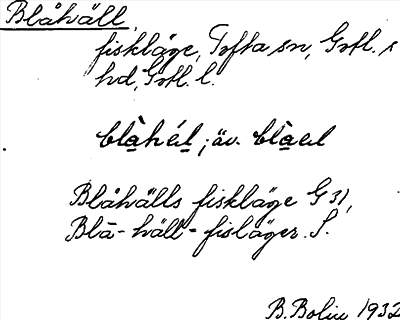 Blåhäll,
fiskläge, Tofta sn, Gotl. s
hd, Gotl. l.
blàhél; äv. blàel
Blåhälls fiskläge G 31,
Blå-häll-fisläger. S.
B. Bolin 1932